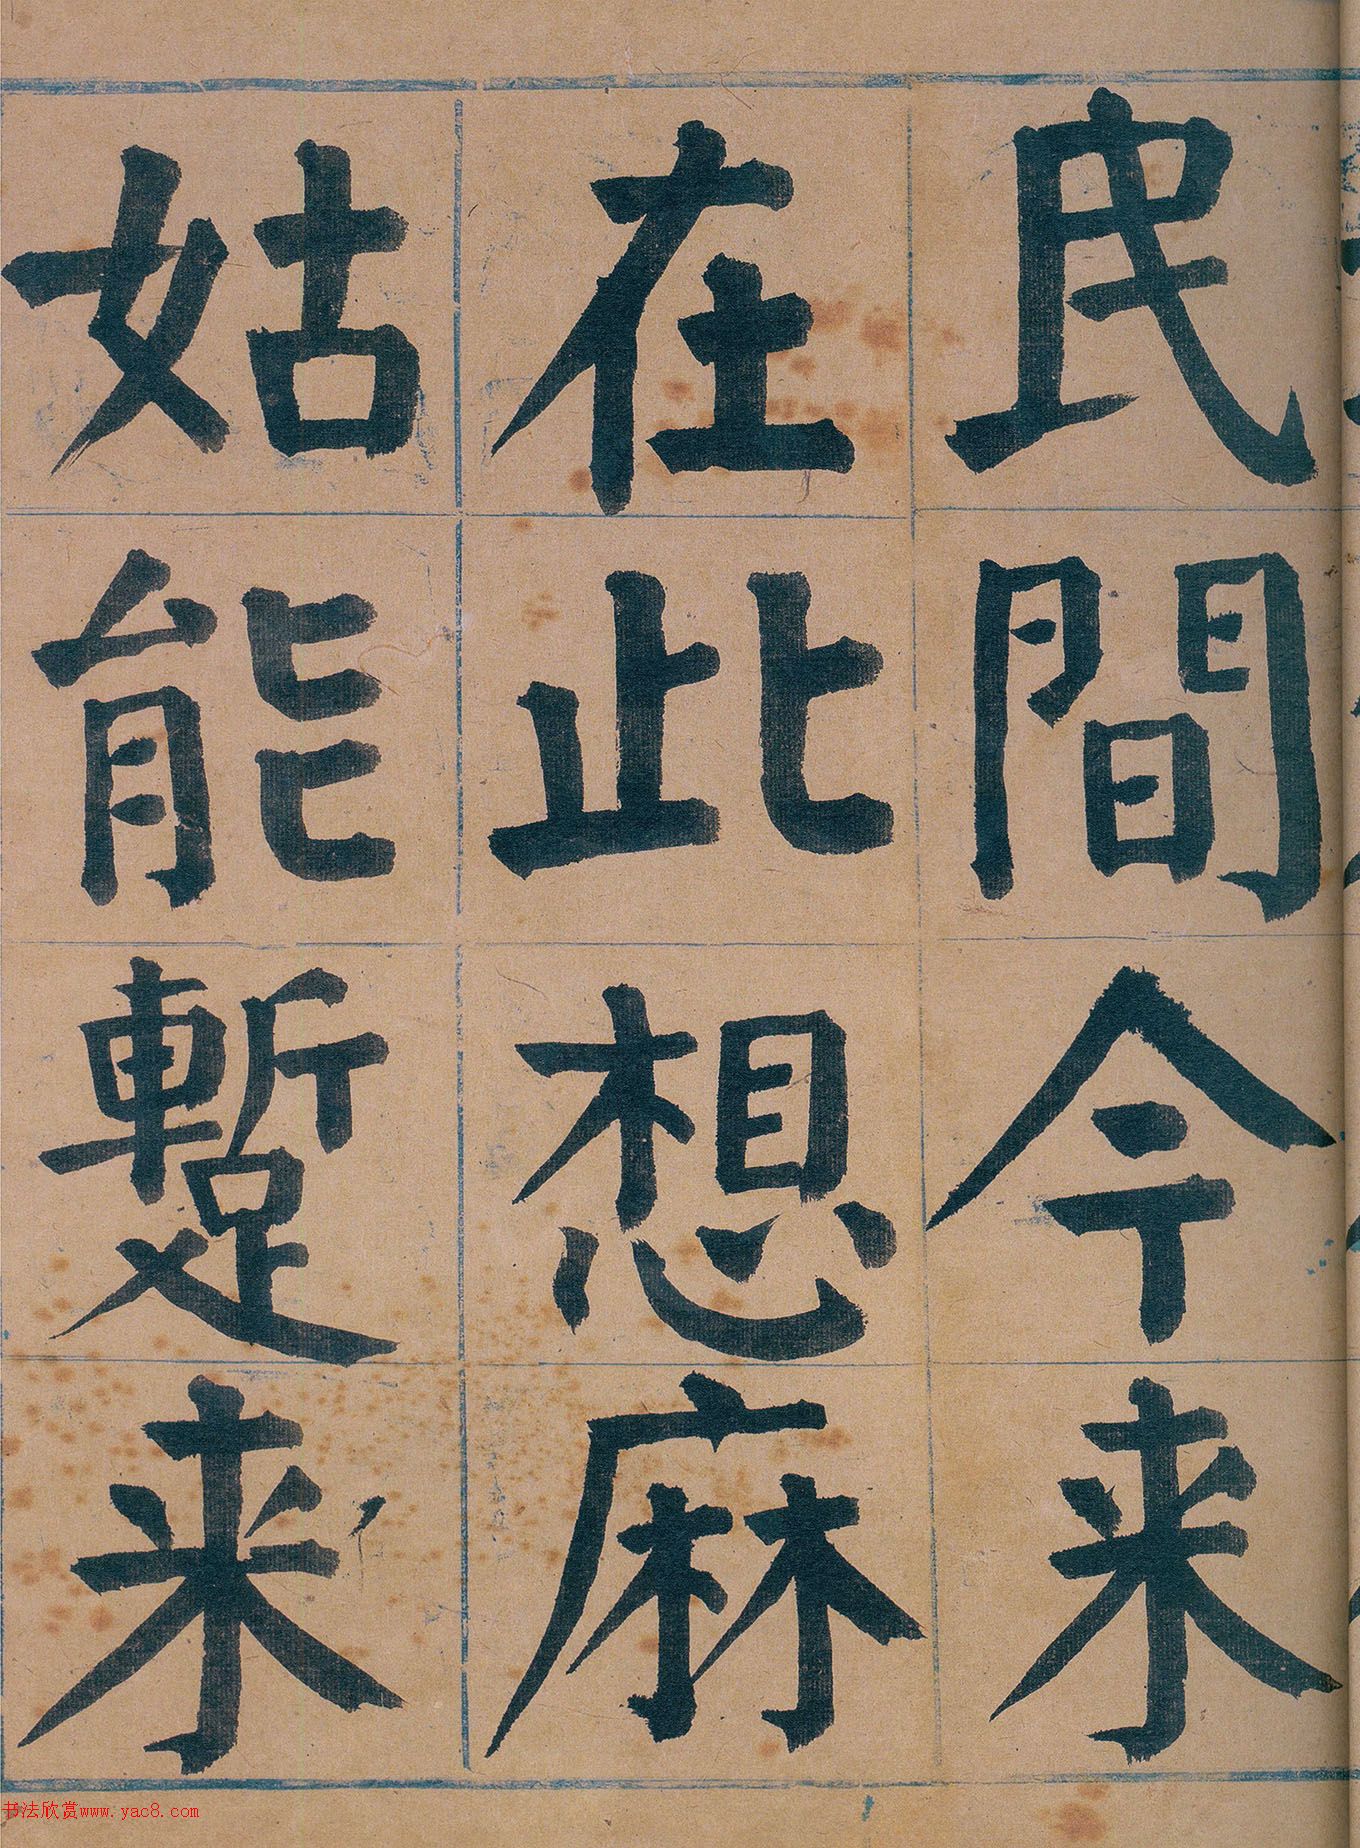 民間今来
在此想麻
姑能蹔来
书法欣赏www.yac8.com